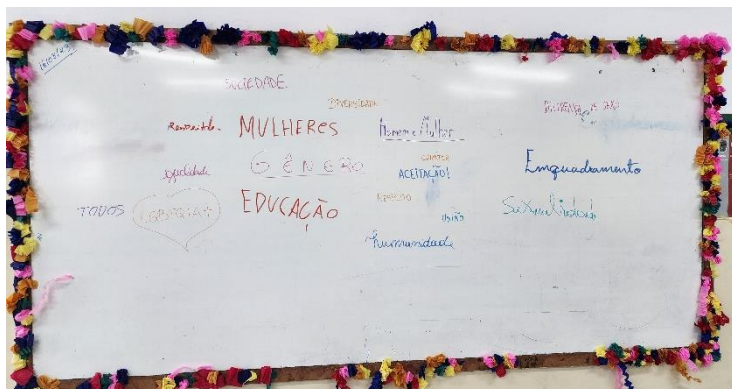 SOCIEDADE
DIVERSIDADE
MULHERES
Homem e Mulher
igualdade
GÊNERO
CARÁTER
ACEITAÇÃO!
Enquadramento
TODOS
LGBTQIA+
EDUCAÇÃO
RESPEITO
UNIÃO
Sexualidade
humanidade